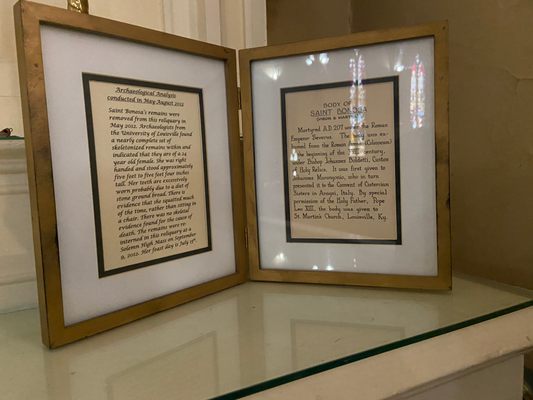 Archaeological Analysis
conducted in May-August 2012
Saint Bonosa's remains were
removed from this reliquary in
May 2012. Archaeologists from
the University of Louisville found
a nearly complete set of
skeletonized remains and
indicated that they are of a 24
year old female. She was right
handed and stood approximately
five feet to five feet four inches
tall. Her teeth are excessively
worn probably due to a diet of
stone ground bread. There is
evidence that she squatted much
of the time, rather than sitting in
a chair. There was no skeletal
evidence found for the cause of
death. The remains were re
interred in this reliquary at a
Solemn High Mass on September
9, 2012. Her feast day is July 15th
BODY OF
SAINT BONOSA
(VIRGIN & MARTYR)
Martyred A.D. 207 under the Roman
Emperor Severus. The body was ex-
humed from the Roman
the beginning of the century,
under Bishop Johannes Baldetti, Custos
of Holy Relics. It was first given to
Johannes Morongonio, who in turn
presented it to the Convent of Cistercian
Sisters in Anagni, Italy. By special
permission of the Holy Father, Pope
Leo XIII, the body was given to
St. Martin's Church, Louisville, Ky.